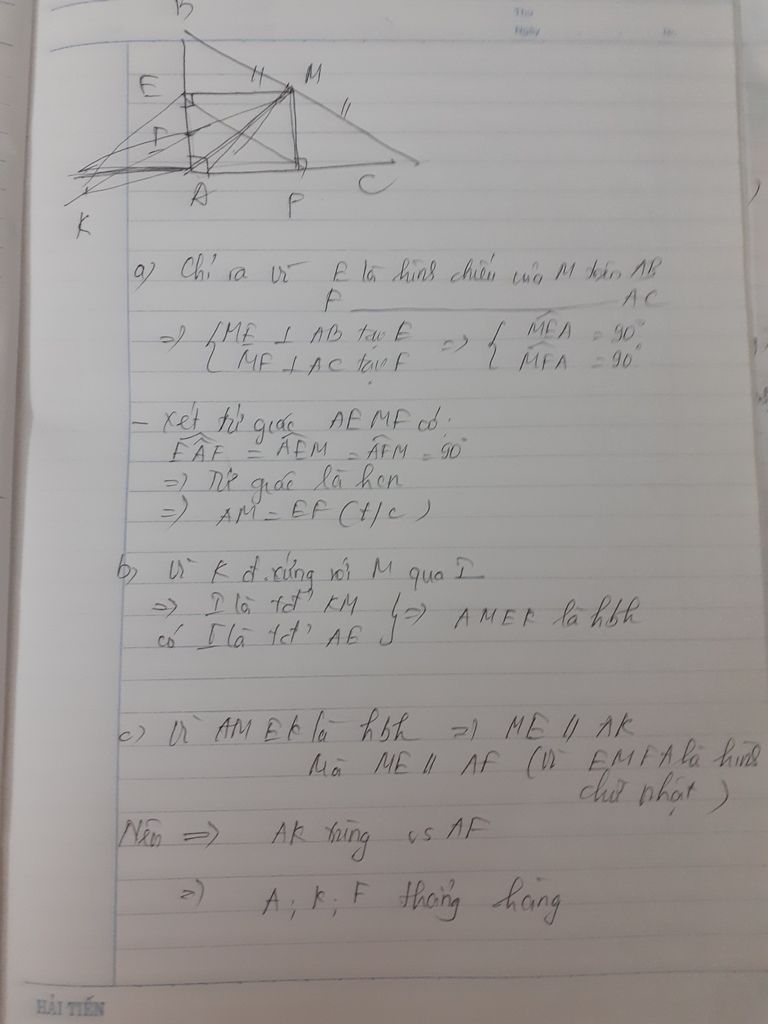 Thứ
Ngày
B
E
M
I
A
F
C
K
a) Chỉ ra vì E là hình chiếu của M trên AB
F ———— AC
=> { ME ⊥ AB tại E => { MEA = 90°
{ MF ⊥ AC tại F { MFA = 90°
- Xét tứ giác AEMF có:
EAF = AEM = AFM = 90°
=> Tứ giác là hcn
=> AM = EF (t/c)
b) Vì K đ.xứng với M qua I
=> I là tđ' KM } => AMEK là hbh
có I là tđ' AE
c) Vì AMEK là hbh => ME // AK
Mà ME // AF (Vì EMFA là hình
chữ nhật)
Nên => AK trùng vs AF
=> A; K; F thẳng hàng
HẢI TIẾN